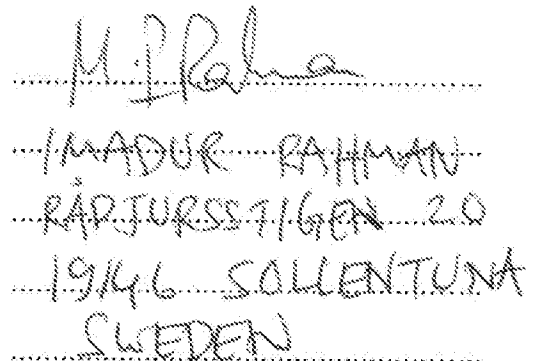 M.I Rahma
IMADUR RAHMAN
RÅDJURSSTIGEN 20
19146 SOLLENTUNA
SWEDEN